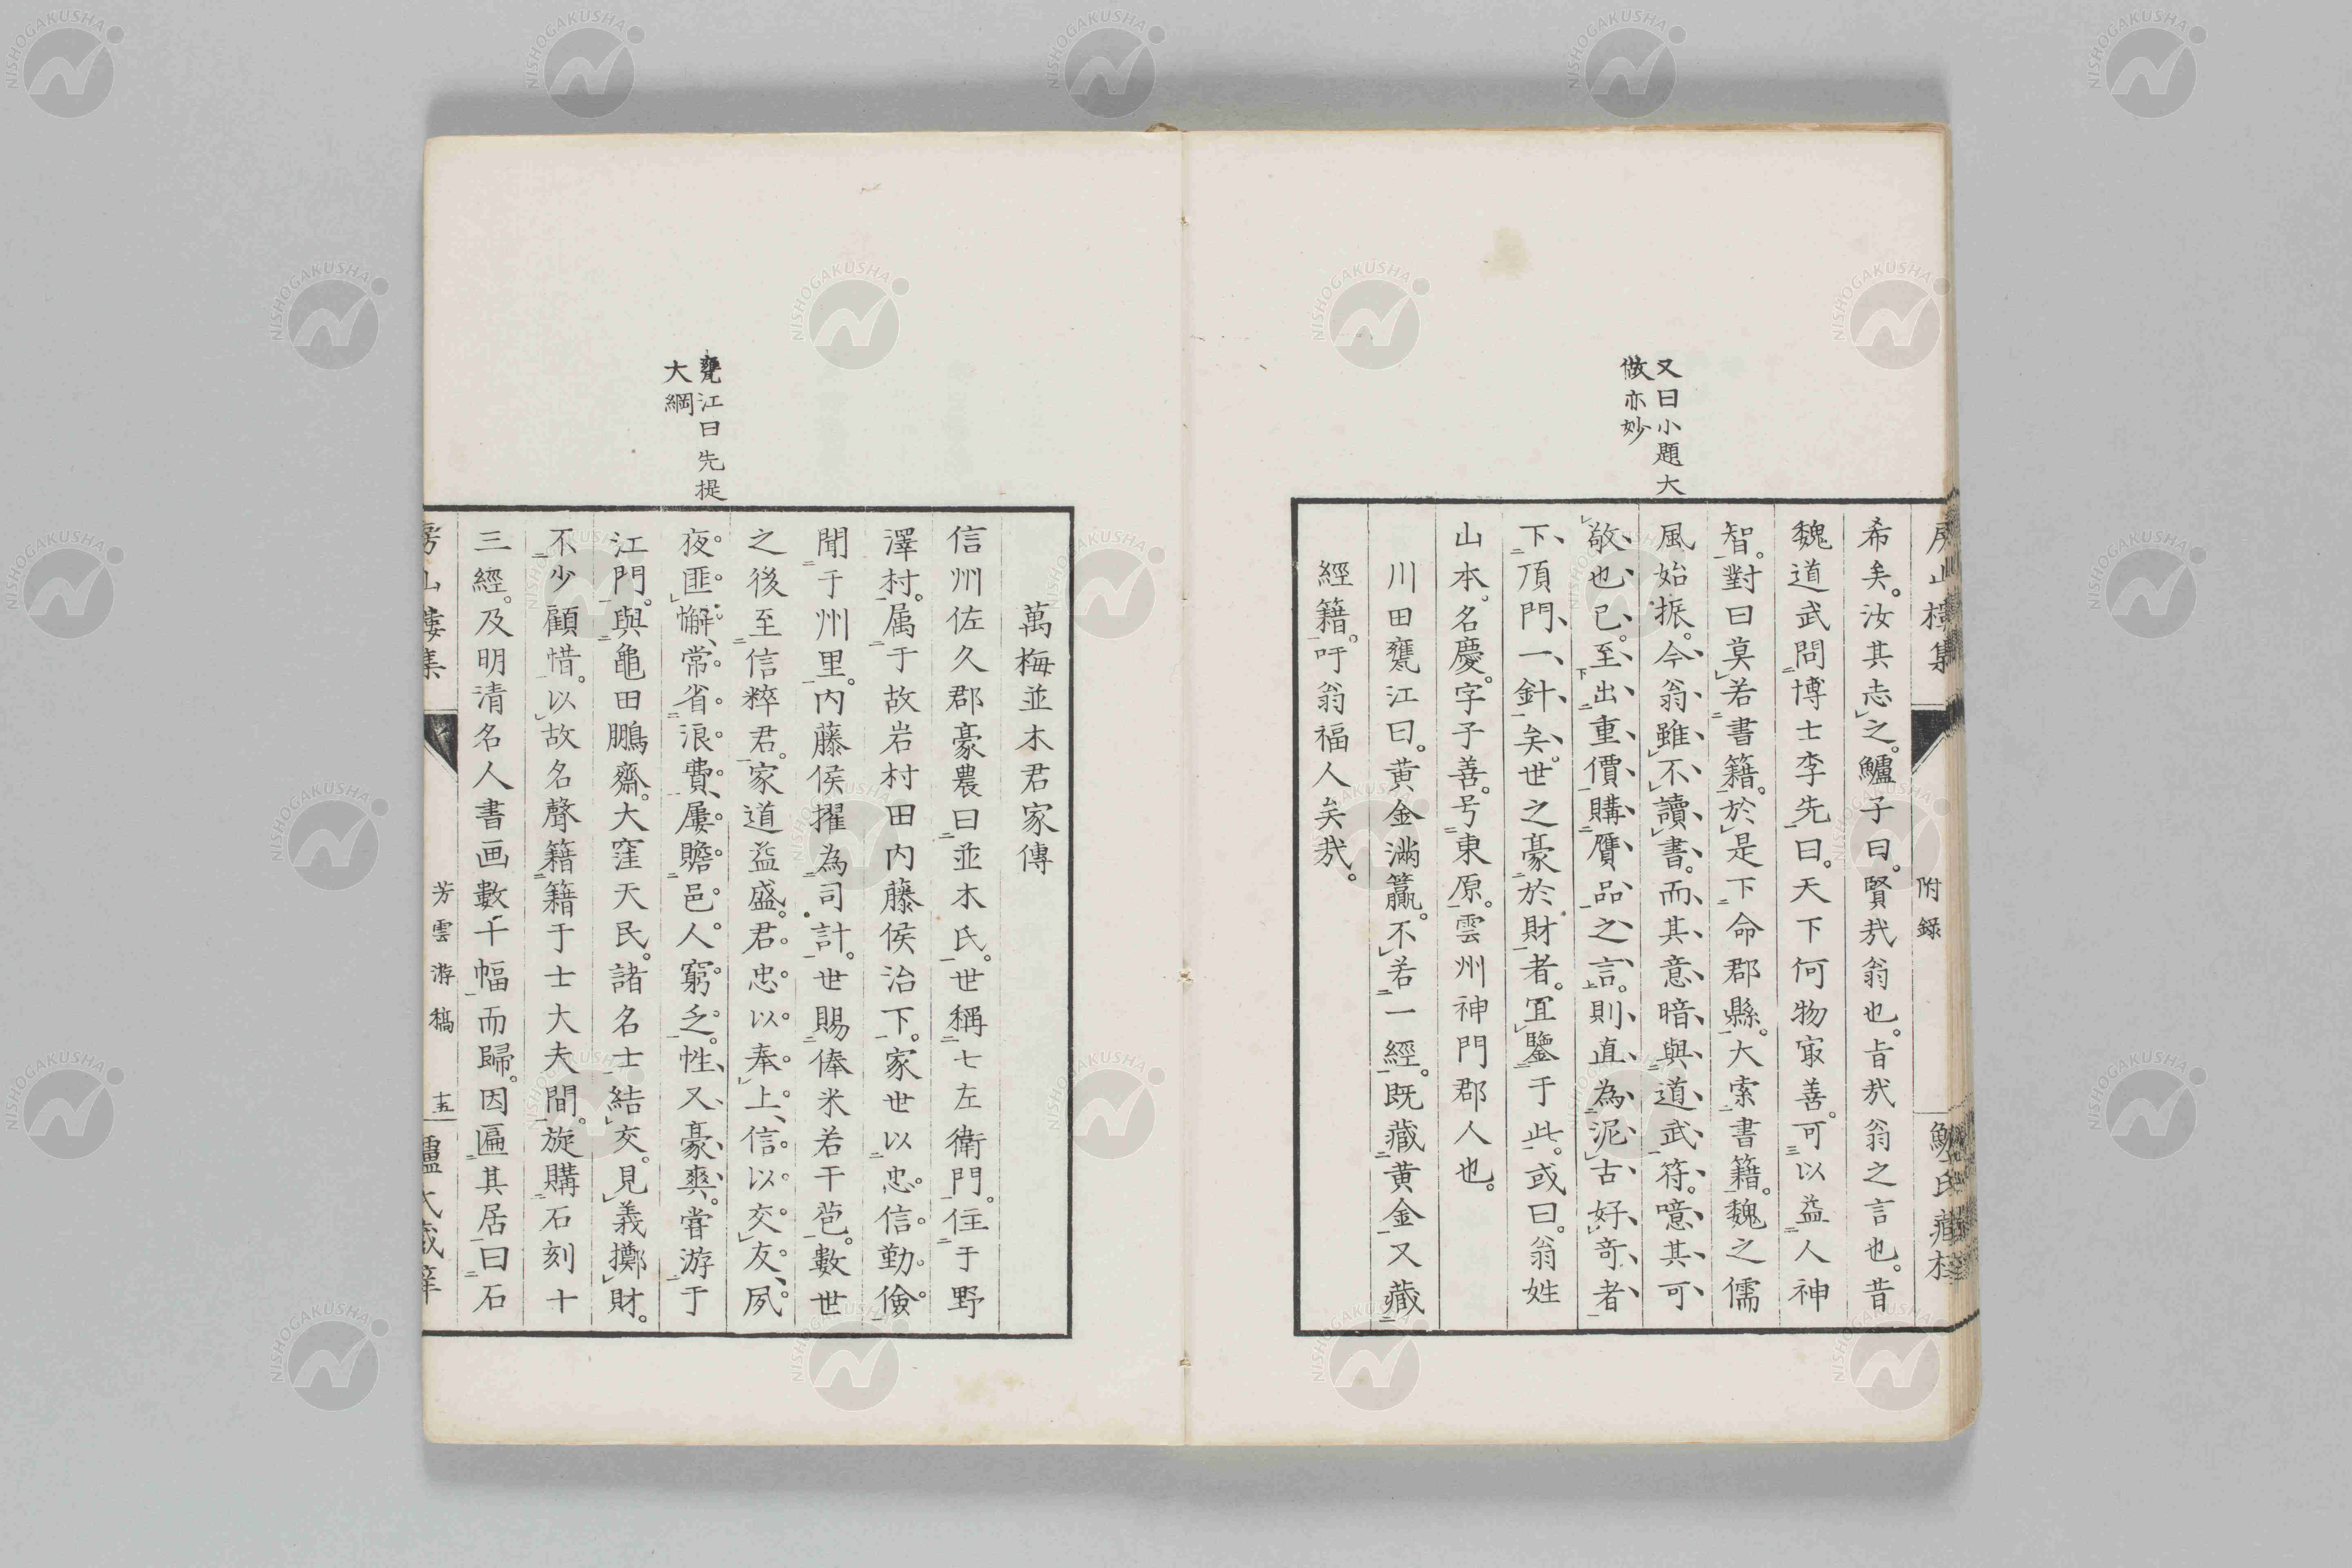 又曰小題大
做亦妙
附錄
希矣。汝其志之。鱸子曰。賢哉翁也。旨哉翁之言也。昔
魏道武問博士李先曰。天下何物㝡善。可以益人神
智。對曰莫若書籍。於是下命郡縣。大索書籍。魏之儒
風始振。今翁雖不讀書。而其意暗與道武符。噫其可
敬也已。至出重價購贋品之言。則直為泥古好竒者
下頂門一針矣。世之豪於財者。冝鑒于此。或曰。翁姓
山本。名慶。字子善。号東原。雲州神門郡人也。
川田甕江曰。黄金滿籯。不若一經。既藏黄金又藏
經籍。吁翁福人矣哉。
甕江曰先提
大綱
萬梅並木君家傳
信州佐久郡豪農曰並木氏。世稱七左衛門。住于野
澤村。属于故岩村田内藤侯治下。家世以忠信勤儉
聞于州里。内藤侯擢為司計。世賜俸米若干苞。數世
之後至信粹君。家道益盛。君忠以奉上、信以交友、夙
夜匪懈、常省浪費、屢贍邑人窮乏。性又豪爽。嘗游于
江門。與亀田鵬齋。大窪天民。諸名士結交。見義擲財。
不少顧惜。以故名聲籍籍于士大夫間。旋購石刻十
三經。及明清名人書画數千幅而歸。因匾其居曰石
芳雲游稿
十五
NISHOGAKUSHA